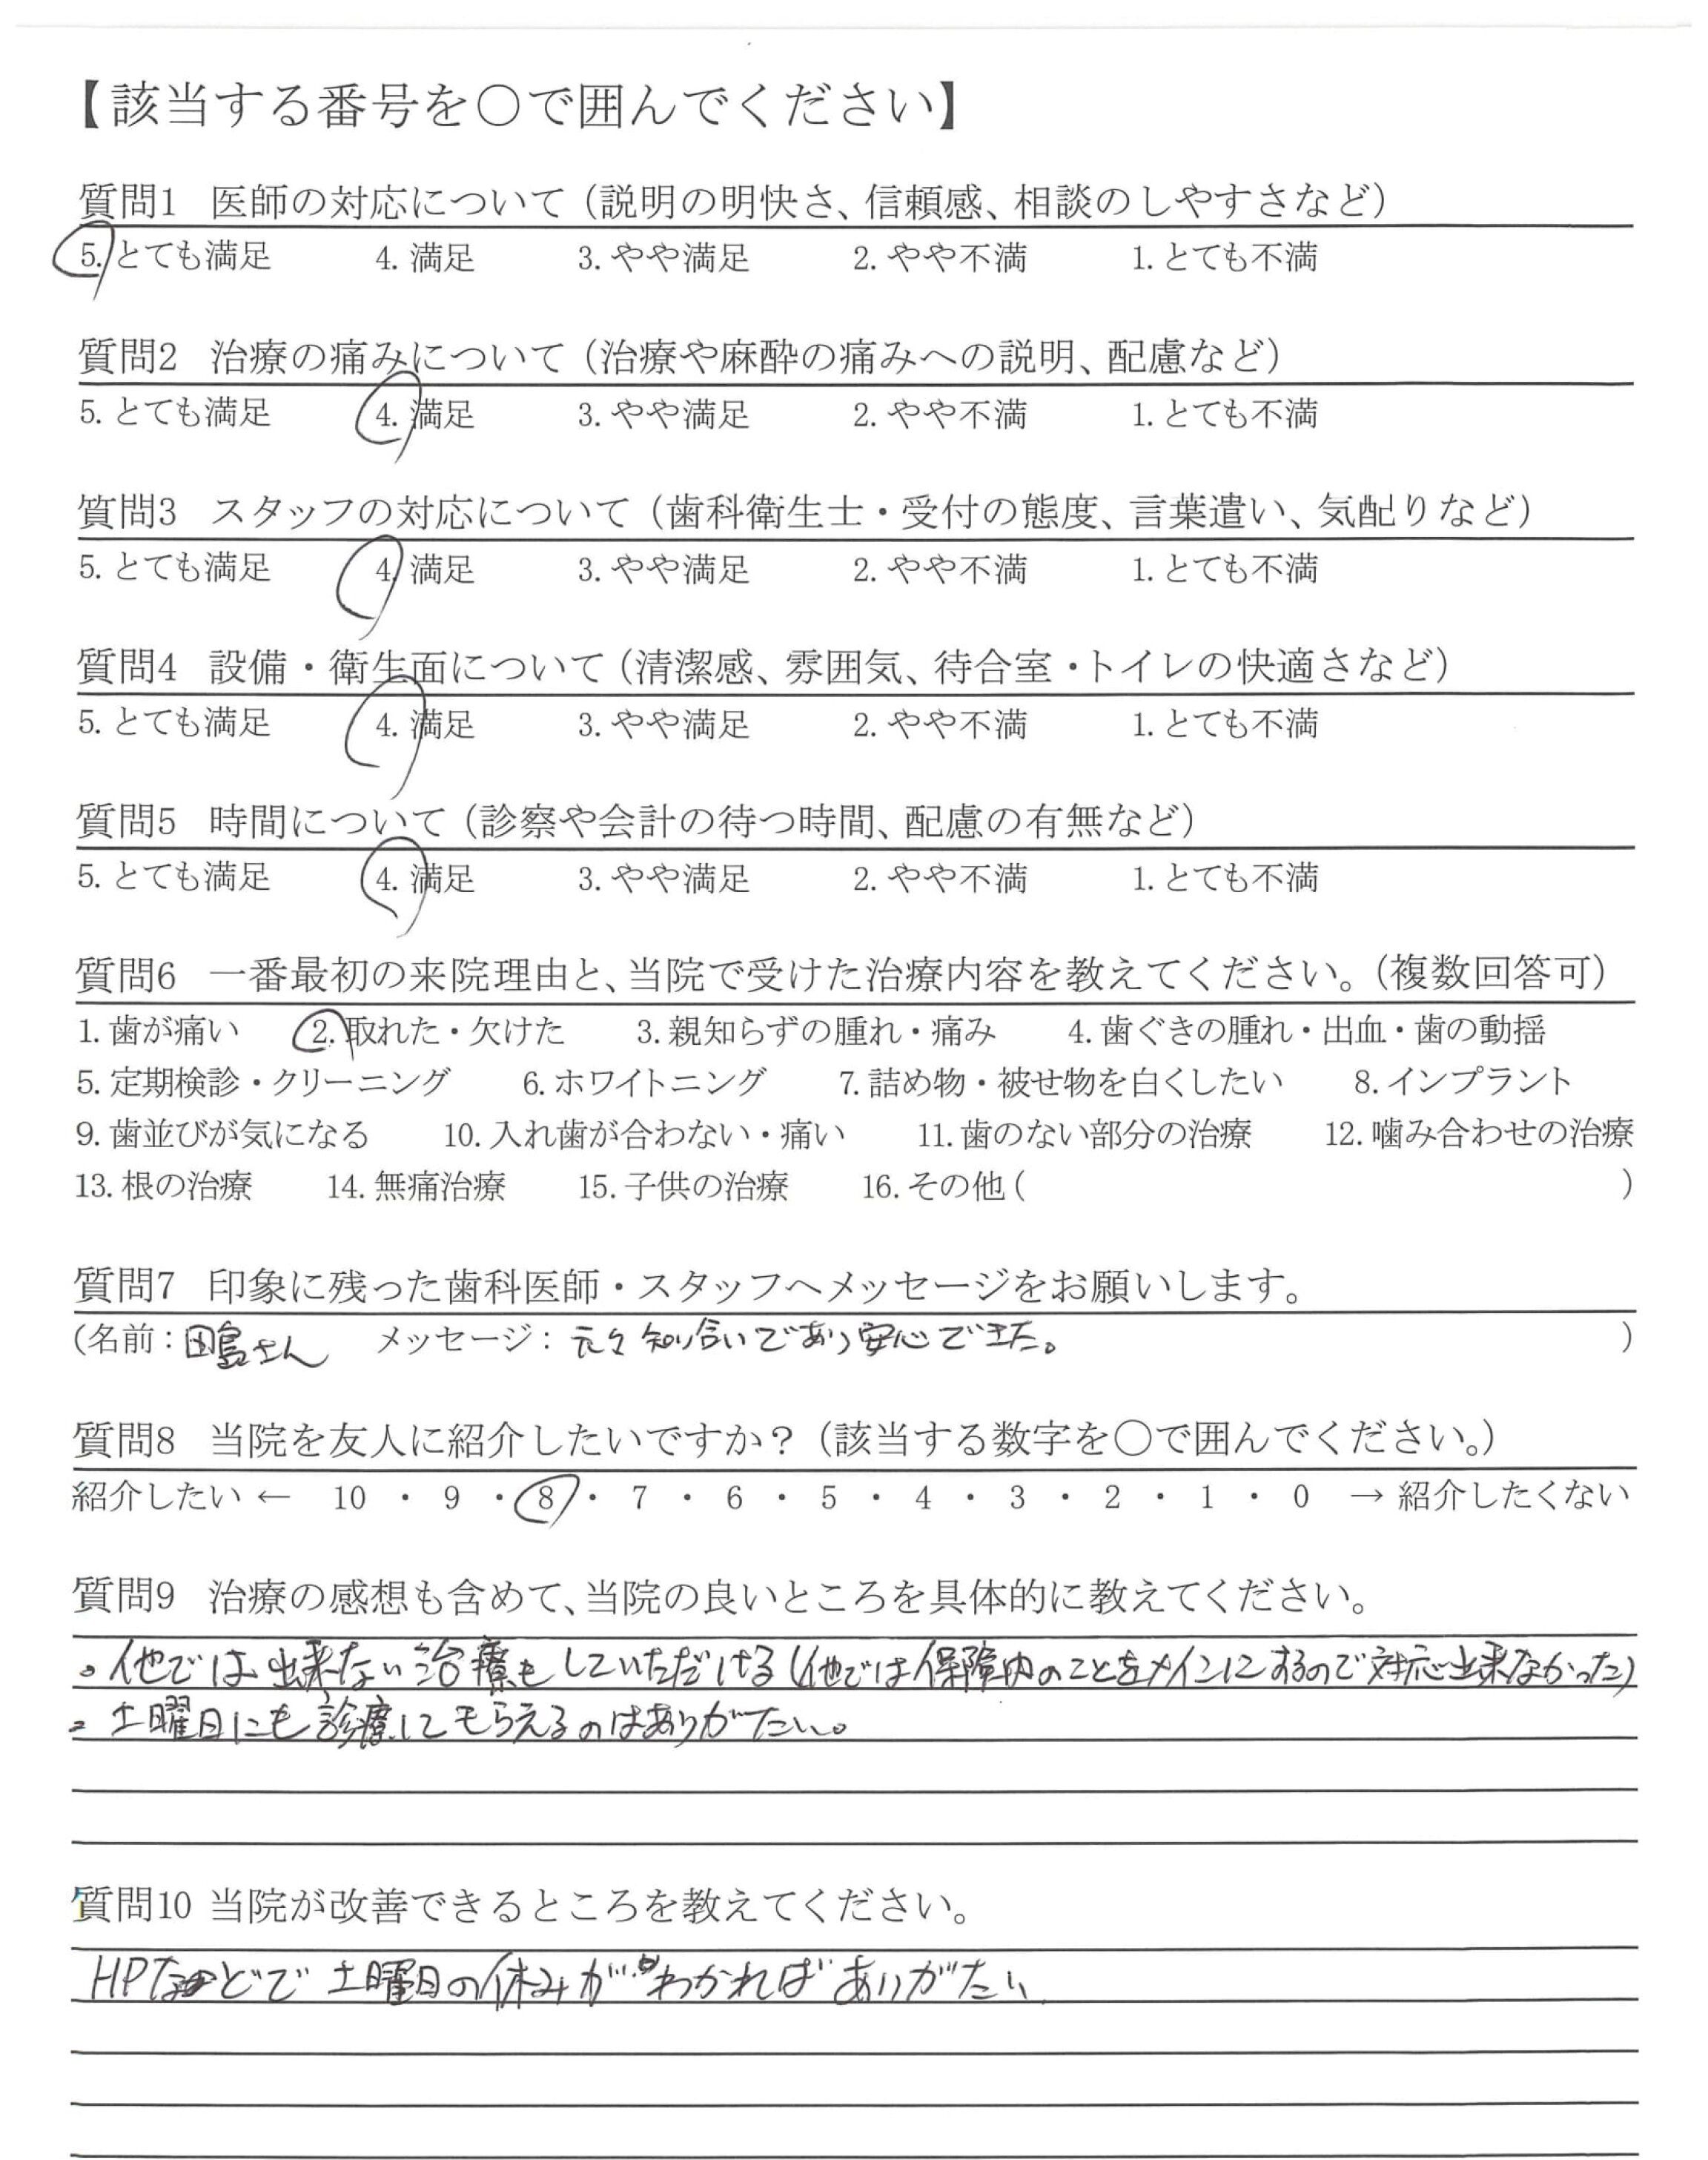 【該当する番号を○で囲んでください】
質問1 医師の対応について（説明の明快さ、信頼感、相談のしやすさなど）
5. とても満足 4. 満足 3. やや満足 2. やや不満 1. とても不満
質問2 治療の痛みについて（治療や麻酔の痛みへの説明、配慮など）
5. とても満足 4. 満足 3. やや満足 2. やや不満 1. とても不満
質問3 スタッフの対応について（歯科衛生士・受付の態度、言葉遣い、気配りなど）
5. とても満足 4. 満足 3. やや満足 2. やや不満 1. とても不満
質問4 設備・衛生面について（清潔感、雰囲気、待合室・トイレの快適さなど）
5. とても満足 4. 満足 3. やや満足 2. やや不満 1. とても不満
質問5 時間について（診察や会計の待つ時間、配慮の有無など）
5. とても満足 4. 満足 3. やや満足 2. やや不満 1. とても不満
質問6 一番最初の来院理由と、当院で受けた治療内容を教えてください。（複数回答可）
1. 歯が痛い 2. 取れた・欠けた 3. 親知らずの腫れ・痛み 4. 歯ぐきの腫れ・出血・歯の動揺
5. 定期検診・クリーニング 6. ホワイトニング 7. 詰め物・被せ物を白くしたい 8. インプラント
9. 歯並びが気になる 10. 入れ歯が合わない・痛い 11. 歯のない部分の治療 12. 噛み合わせの治療
13. 根の治療 14. 無痛治療 15. 子供の治療 16. その他（ ）
質問7 印象に残った歯科医師・スタッフへメッセージをお願いします。
（名前：田島さん メッセージ：元々知り合いであり安心できた。）
質問8 当院を友人に紹介したいですか？（該当する数字を○で囲んでください。）
紹介したい ← 10 ・ 9 ・ 8 ・ 7 ・ 6 ・ 5 ・ 4 ・ 3 ・ 2 ・ 1 ・ 0 → 紹介したくない
質問9 治療の感想も含めて、当院の良いところを具体的に教えてください。
。他では出来ない治療もしていただける（他では保障内のことをメインにするので対応出来なかった）
。土曜日にも診療してもらえるのはありがたい。
質問10 当院が改善できるところを教えてください。
HPなどで土曜日の休みがわかればありがたい